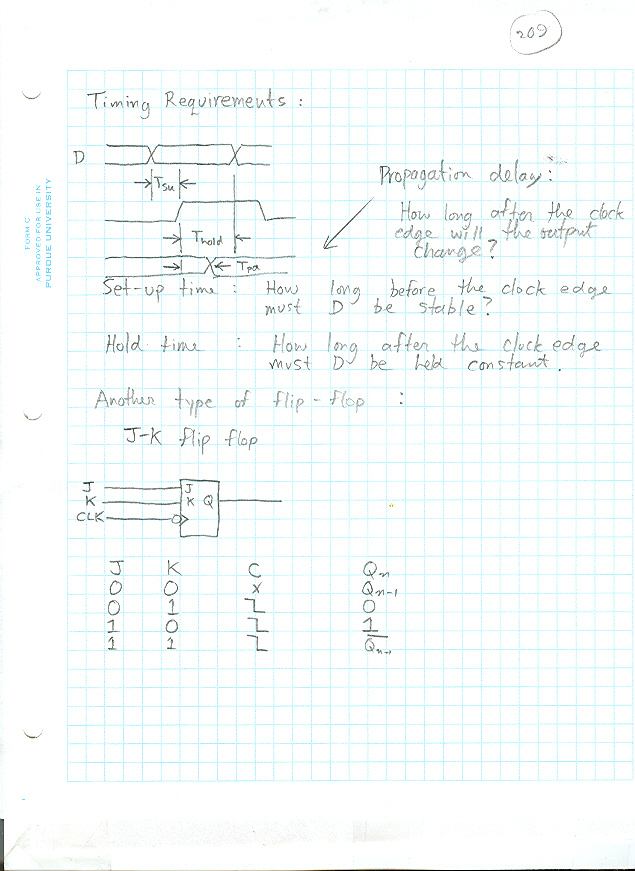 209
FORM C
APPROVED FOR USE IN
PURDUE UNIVERSITY
Timing Requirements :
D
Tsu
Thold
Tpa
Propagation delay :
How long after the clock
edge will the output
change?
Set-up time : How long before the clock edge
must D be stable?
Hold time : How long after the clock edge
must D be held constant.
Another type of flip-flop :
J-K flip flop
J J
K K Q
CLK
J K C Qn
0 0 x Qn-1
0 1 0
1 0 1
1 1 Q̅n-1